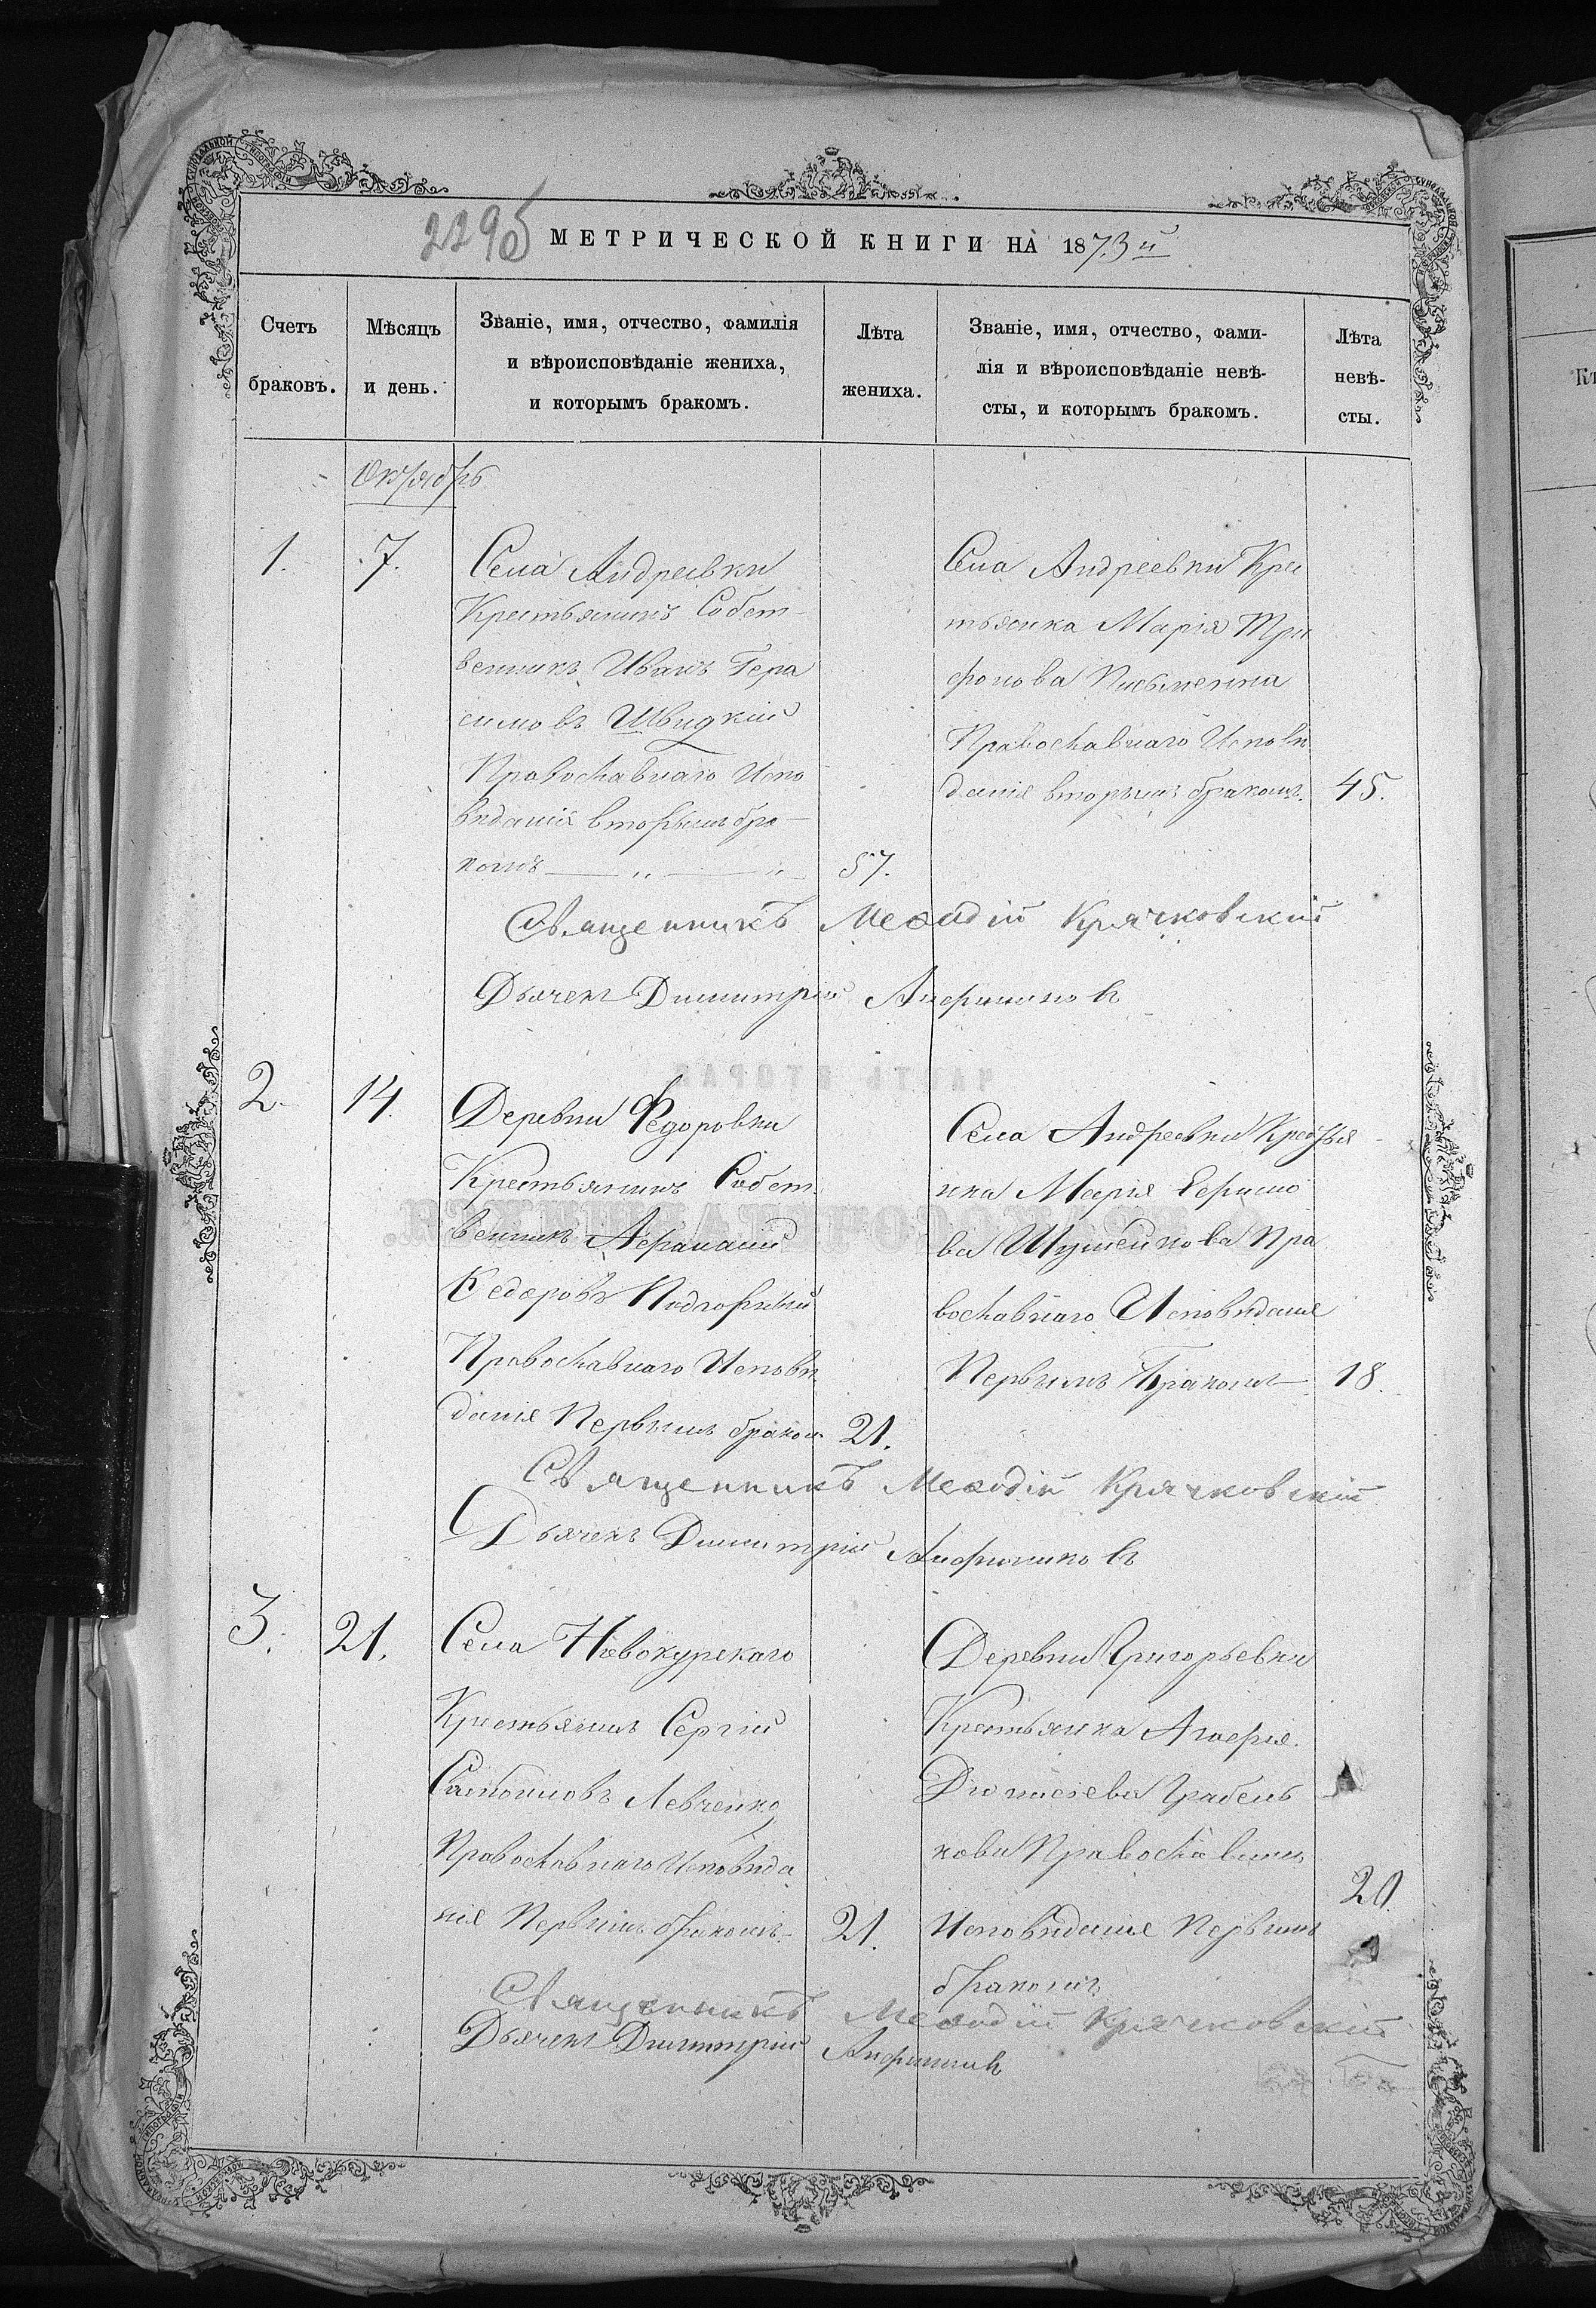 229б МЕТРИЧЕСКОЙ КНИГИ НА 1873й
Счетъ браковъ.
Мѣсяцъ и день.
Званіе, имя, отчество, фамилія
и вѣроисповѣданіе жениха,
и которымъ бракомъ.
Лѣта жениха.
Званіе, имя, отчество, фами-
лія и вѣроисповѣданіе невѣ-
сты, и которымъ бракомъ.
Лѣта невѣ-
сты.
Октябрь
1. 7.
Села Андреевки
Крестьянинъ Собст-
венникъ Иванъ Гера
симовъ Швидкій
Православнаго Испо
вѣданія вторымъ бра-
комъ 57.
Села Андреевки Крес
тьянка Марія Три
фонова Письменна
Православнаго Исповѣ
данія вторымъ бракомъ. 45.
Священникъ Меѳодій Крячковскій
Дьячекъ Димитрій Анфиминовъ
2. 14.
Деревни Федоровки
Крестьянинъ Собст
венникъ Афанасий
Федоровъ Подгорный
Православнаго Исповѣ
данія Первымъ бракомъ 21.
Села Андреевки Крестья
нка Марія
ва Пра
вославнаго Исповѣданія
Первымъ Бракомъ 18.
Священникъ Меѳодій Крячковскій
Дьячекъ Димитрій Анфиминовъ
3. 21.
Села Новокурскаго
Крестьянинъ Сергій
Левченко
Православнаго Исповѣда
нія Первымъ бракомъ 21.
Деревни Григорьевки
Крестьянка Агафія
Діонисіева Грабель
кова Православнаго
Исповѣданія Первымъ
бракомъ 20.
Священникъ Меѳодій Крячковскій
Дьячекъ Димитрій Анфиминовъ